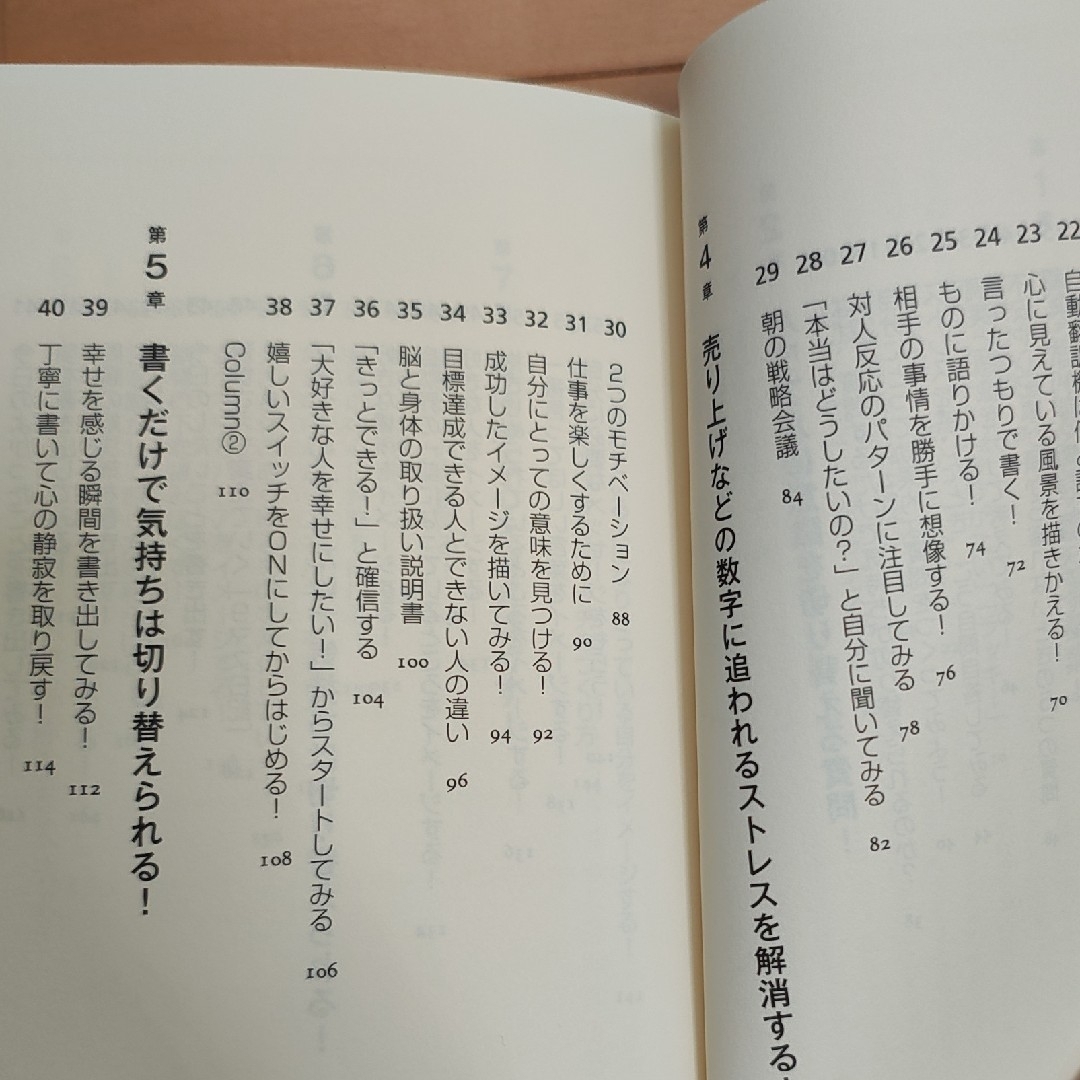 22
23 心に見えている風景を描きかえる! 70
24 言ったつもりで書く! 72
25 ものに語りかける! 74
26 相手の事情を勝手に想像する! 76
27 対人反応のパターンに注目してみる 78
28 「本当はどうしたいの?」と自分に聞いてみる 82
29 朝の戦略会議 84
第4章 売り上げなどの数字に追われるストレスを解消する
30 2つのモチベーション 88
31 仕事を楽しくするために 90
32 自分にとっての意味を見つける! 92
33 成功したイメージを描いてみる! 94
34 目標達成できる人とできない人の違い 96
35 脳と身体の取り扱い説明書 100
36 「きっとできる!」と確信する 104
37 「大好きな人を幸せにしたい!」からスタートしてみる 106
38 嬉しいスイッチをONにしてからはじめる! 108
Column② 110
第5章 書くだけで気持ちは切り替えられる!
39 幸せを感じる瞬間を書き出してみる! 112
40 丁寧に書いて心の静寂を取り戻す! 114